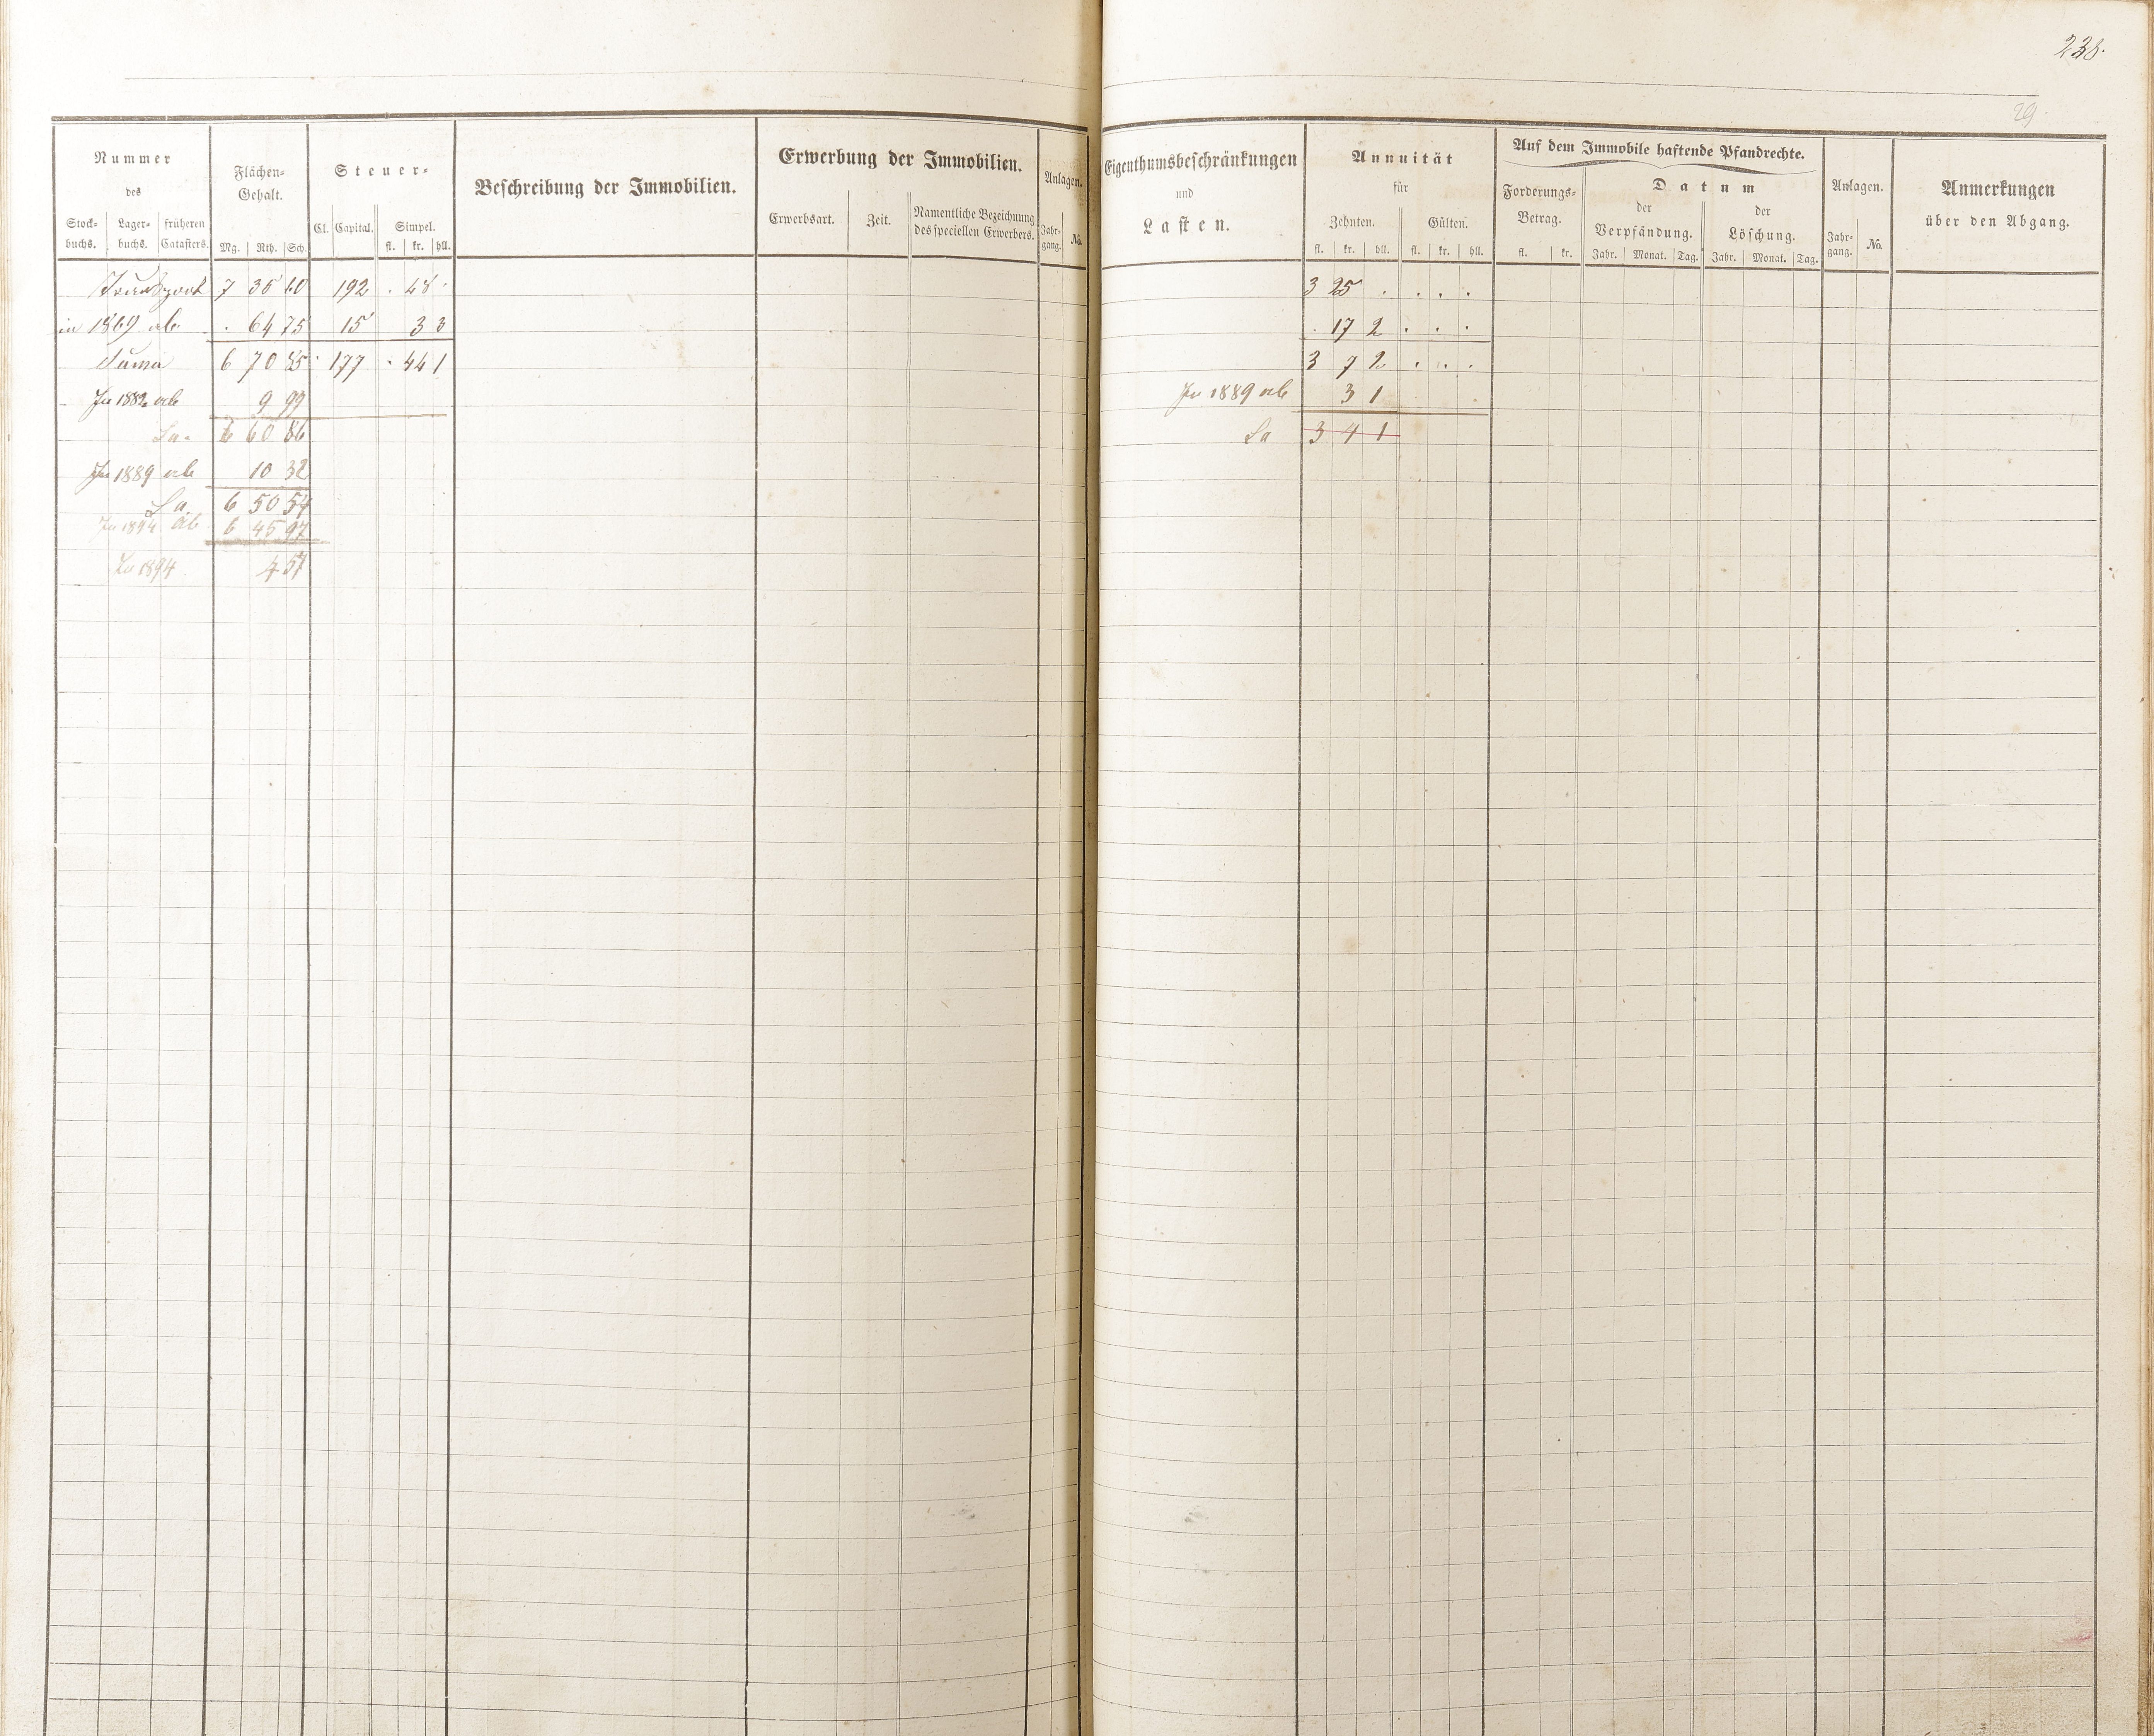 238.
29.
Nummer
des
Stock-
buchs.
Lager-
buchs.
früheren
Catasters.
Flächen-
Gehalt.
Mg. Rth. Sch.
Steuer-
Cl. Capital. Simpel.
fl. kr. hll.
Beschreibung der Immobilien.
Erwerbung der Immobilien.
Erwerbsart. Zeit.
Namentliche Bezeichnung
des speciellen Erwerbers.
Anlagen.
Jahr-
gang.
No.
Eigenthumsbeschränkungen
und
Lasten.
Annuität
für
Zehnten. Gülten.
fl. kr. hll. fl. kr. hll.
Auf dem Immobile haftende Pfandrechte.
Forderungs-
Betrag.
fl. kr.
Datum
der
Verpfändung.
Jahr. Monat. Tag.
der
Löschung.
Jahr. Monat. Tag.
Anlagen.
Jahr-
gang.
No.
Anmerkungen
über den Abgang.
Transport 7 35 60 192 . 48 .
in 1869 ab . 64 75 15 3 3
Suma 6 70 85 . 177 . 44 1
In 1882 ab 9 99
Sa. 6 60 86
In 1889 ab 10 32
Sa 6 50 54
In 1894 ab 6 45 97
In 1894 4 57
3 25 . . . .
. 17 2 . . .
3 7 2 . . .
In 1889 ab 3 1
Sa 3 4 1